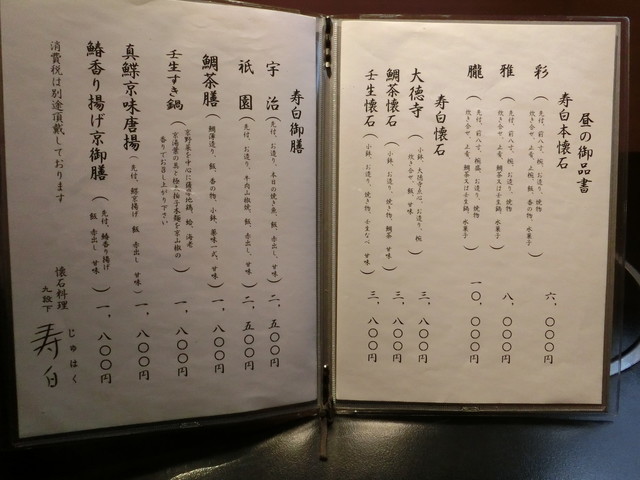 昼の御品書
寿白本懐石
彩
(先付、前八寸、椀、お造り、焼物
炊き合せ、止肴、上椀、飯、香の物、水菓子)
六、〇〇〇円
雅
(先付、前八寸、椀、お造り、焼物
炊き合せ、止肴、鯛茶又は壬生鍋、水菓子)
八、〇〇〇円
朧
(先付、前八寸、椀盛、お造り、焼物
炊き合せ、止肴、鯛茶又は壬生鍋、水菓子)
一〇、〇〇〇円
寿白懐石
大徳寺
(小鉢、大徳寺点心、お造り、椀
炊き合せ、飯、甘味)
三、八〇〇円
鯛茶懐石
(小鉢、お造り、焼き物、鯛茶 甘味)
三、八〇〇円
壬生懐石
(小鉢、お造り、焼き物、壬生なべ 甘味)
三、八〇〇円
寿白御膳
宇治
(先付、お造り、本日の焼き魚、飯、赤出し、甘味)
二、五〇〇円
祇園
(先付、お造り、牛肉山椒焼、飯、赤出し、甘味)
二、五〇〇円
鯛茶膳
(鯛薄造り、飯、香の物、小鉢、薬味一式、甘味)
一、八〇〇円
壬生すき鍋
(京野菜を中心に 地鶏、蛤、海老
京湯葉の具を 柚子水麺を京山椒の
香りでお召し上がり下さい)
一、八〇〇円
真鰈京味唐揚
(先付、鰈京揚げ 飯、赤出し 甘味)
一、八〇〇円
鰆香り揚げ京御膳
(先付、鰆香り揚げ
飯、赤出し、甘味)
一、八〇〇円
消費税は別途頂戴しております
懐石料理
九段下
じゅはく
寿白